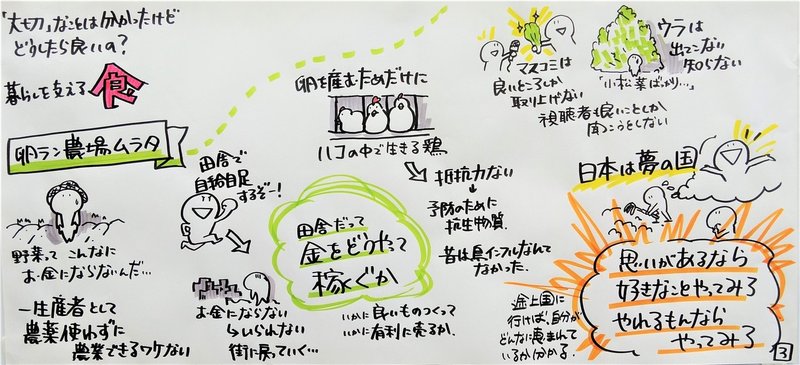 「大切」なことは分かったけど
どうしたら良いの？
暮らしを支える
食
卵ラン農場ムラタ
野菜って こんなに
お金にならないんだ…
一生産者として
農薬使わずに
農業できるワケない
田舎で
自給自足
するぞー！
お金にならない
らいられない
街に戻っていく…
卵を産むためだけに
ハコの中で生きる鶏
抵抗力ない
予防のために
抗生物質.
昔は鳥インフルなんて
なかった.
田舎だって
金をどうやって
稼ぐか
いかに良いものつくって
いかに有利に売るか.
マスコミは
良いところしか
取り上げない
視聴者も良いことしか
聞こうとしない
ウラは
出てこない
知らない
「小松菜ばっかり…」
日本は夢の国
途上国に
行けば、自分が
どんなに恵まれて
いるか分かる.
思いがあるなら
好きなことやってみろ
やれるもんなら
やってみろ
3